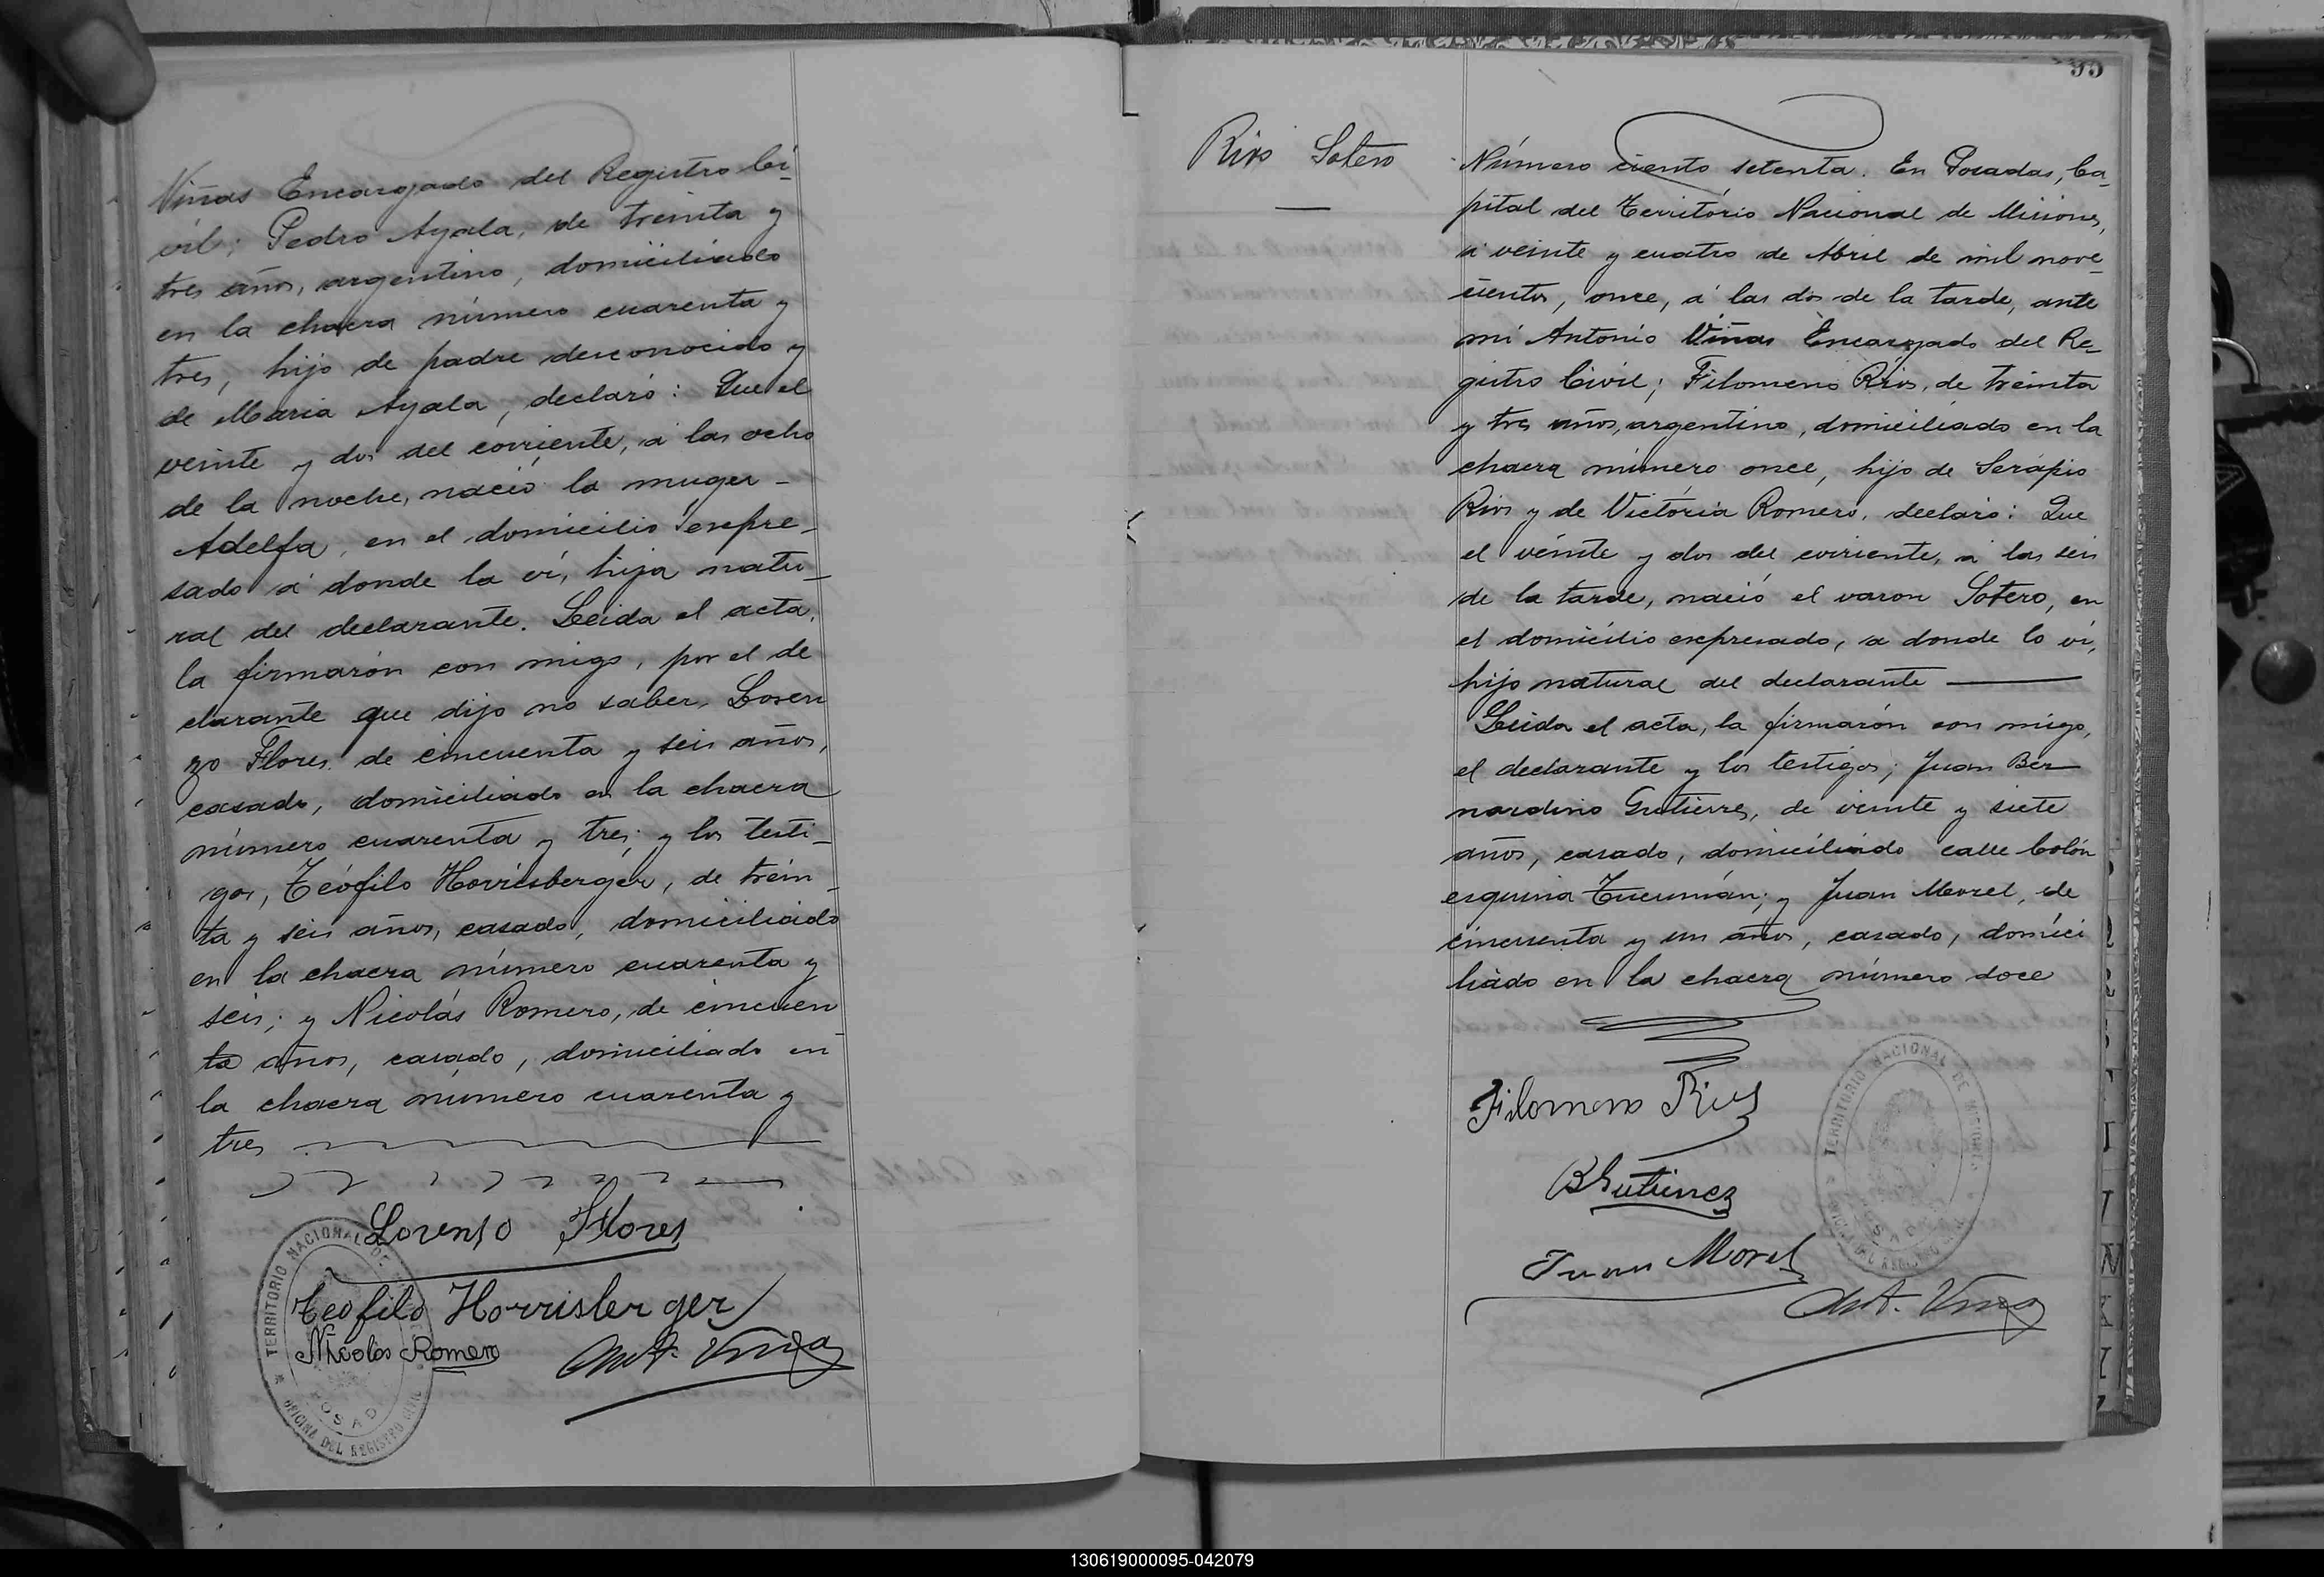 Viñas Encargado del Registro Ci-
vil; Pedro Ayala, de treinta y
tres años, argentino, domiciliado
en la chacra número cuarenta y
tres, hijo de padre desconocido y
de Maria Ayala, declaró: Que el
veinte y dos del corriente, á las ocho
de la noche, nació la muger -
Adelfa, en el domicilio expre-
sado á donde la ví, hija natu-
ral del declarante. Leida el acta,
la firmarón con migo, por el de
clarante que dijo no saber, Loren
zo Flores de cincuenta y seis años,
casado, domiciliado en la chacra
número cuarenta y tres; y los testi-
gos, Teófilo Horrisberger, de trein-
ta y seis años, casado, domiciliado
en la chacra número cuarenta y
seis; y Nicolás Romero, de cincuen
ta años, casado, domiciliado en
la chacra número cuarenta y
tres
Lorenso Flores
Teofilo Horrisberger
Nicolás Romero
Ant. Viñas
TERRITORIO NACIONAL DE
OFICINA DEL REGISTRO CIVIL
POSADAS
95
Rios Sotero
Número ciento setenta. En Posadas, Ca-
pital del Territorio Nacional de Misiones,
á veinte y cuatro de Abril de mil nove-
cientos, once, á las dos de la tarde, ante
mi Antonio Viñas Encargado del Re-
gistro Civil; Filomeno Rios, de treinta
y tres años, argentino, domiciliado en la
chacra número once, hijo de Serapio
Rios y de Victoria Romero, declaró: Que
el veinte y dos del corriente, á las seis
de la tarde, nació el varon Sotero, en
el domicilio expresado, a donde lo ví,
hijo natural del declarante
Leida el acta, la firmarón con migo,
el declarante y los testigos; Juan Ber
nardino Gutierres, de veinte y siete
años, casado, domiciliado calle Colón
esquina Tucumán; y Juan Morel, de
cincuenta y un años, casado, domici
liado en la chacra número doce
Filomeno Rios
B Gutierrez
Juan Morel
Ant. Viñas
TERRITORIO NACIONAL DE MISIONES
OFICINA DEL REGISTRO CIVIL
POSADAS
130619000095-042079